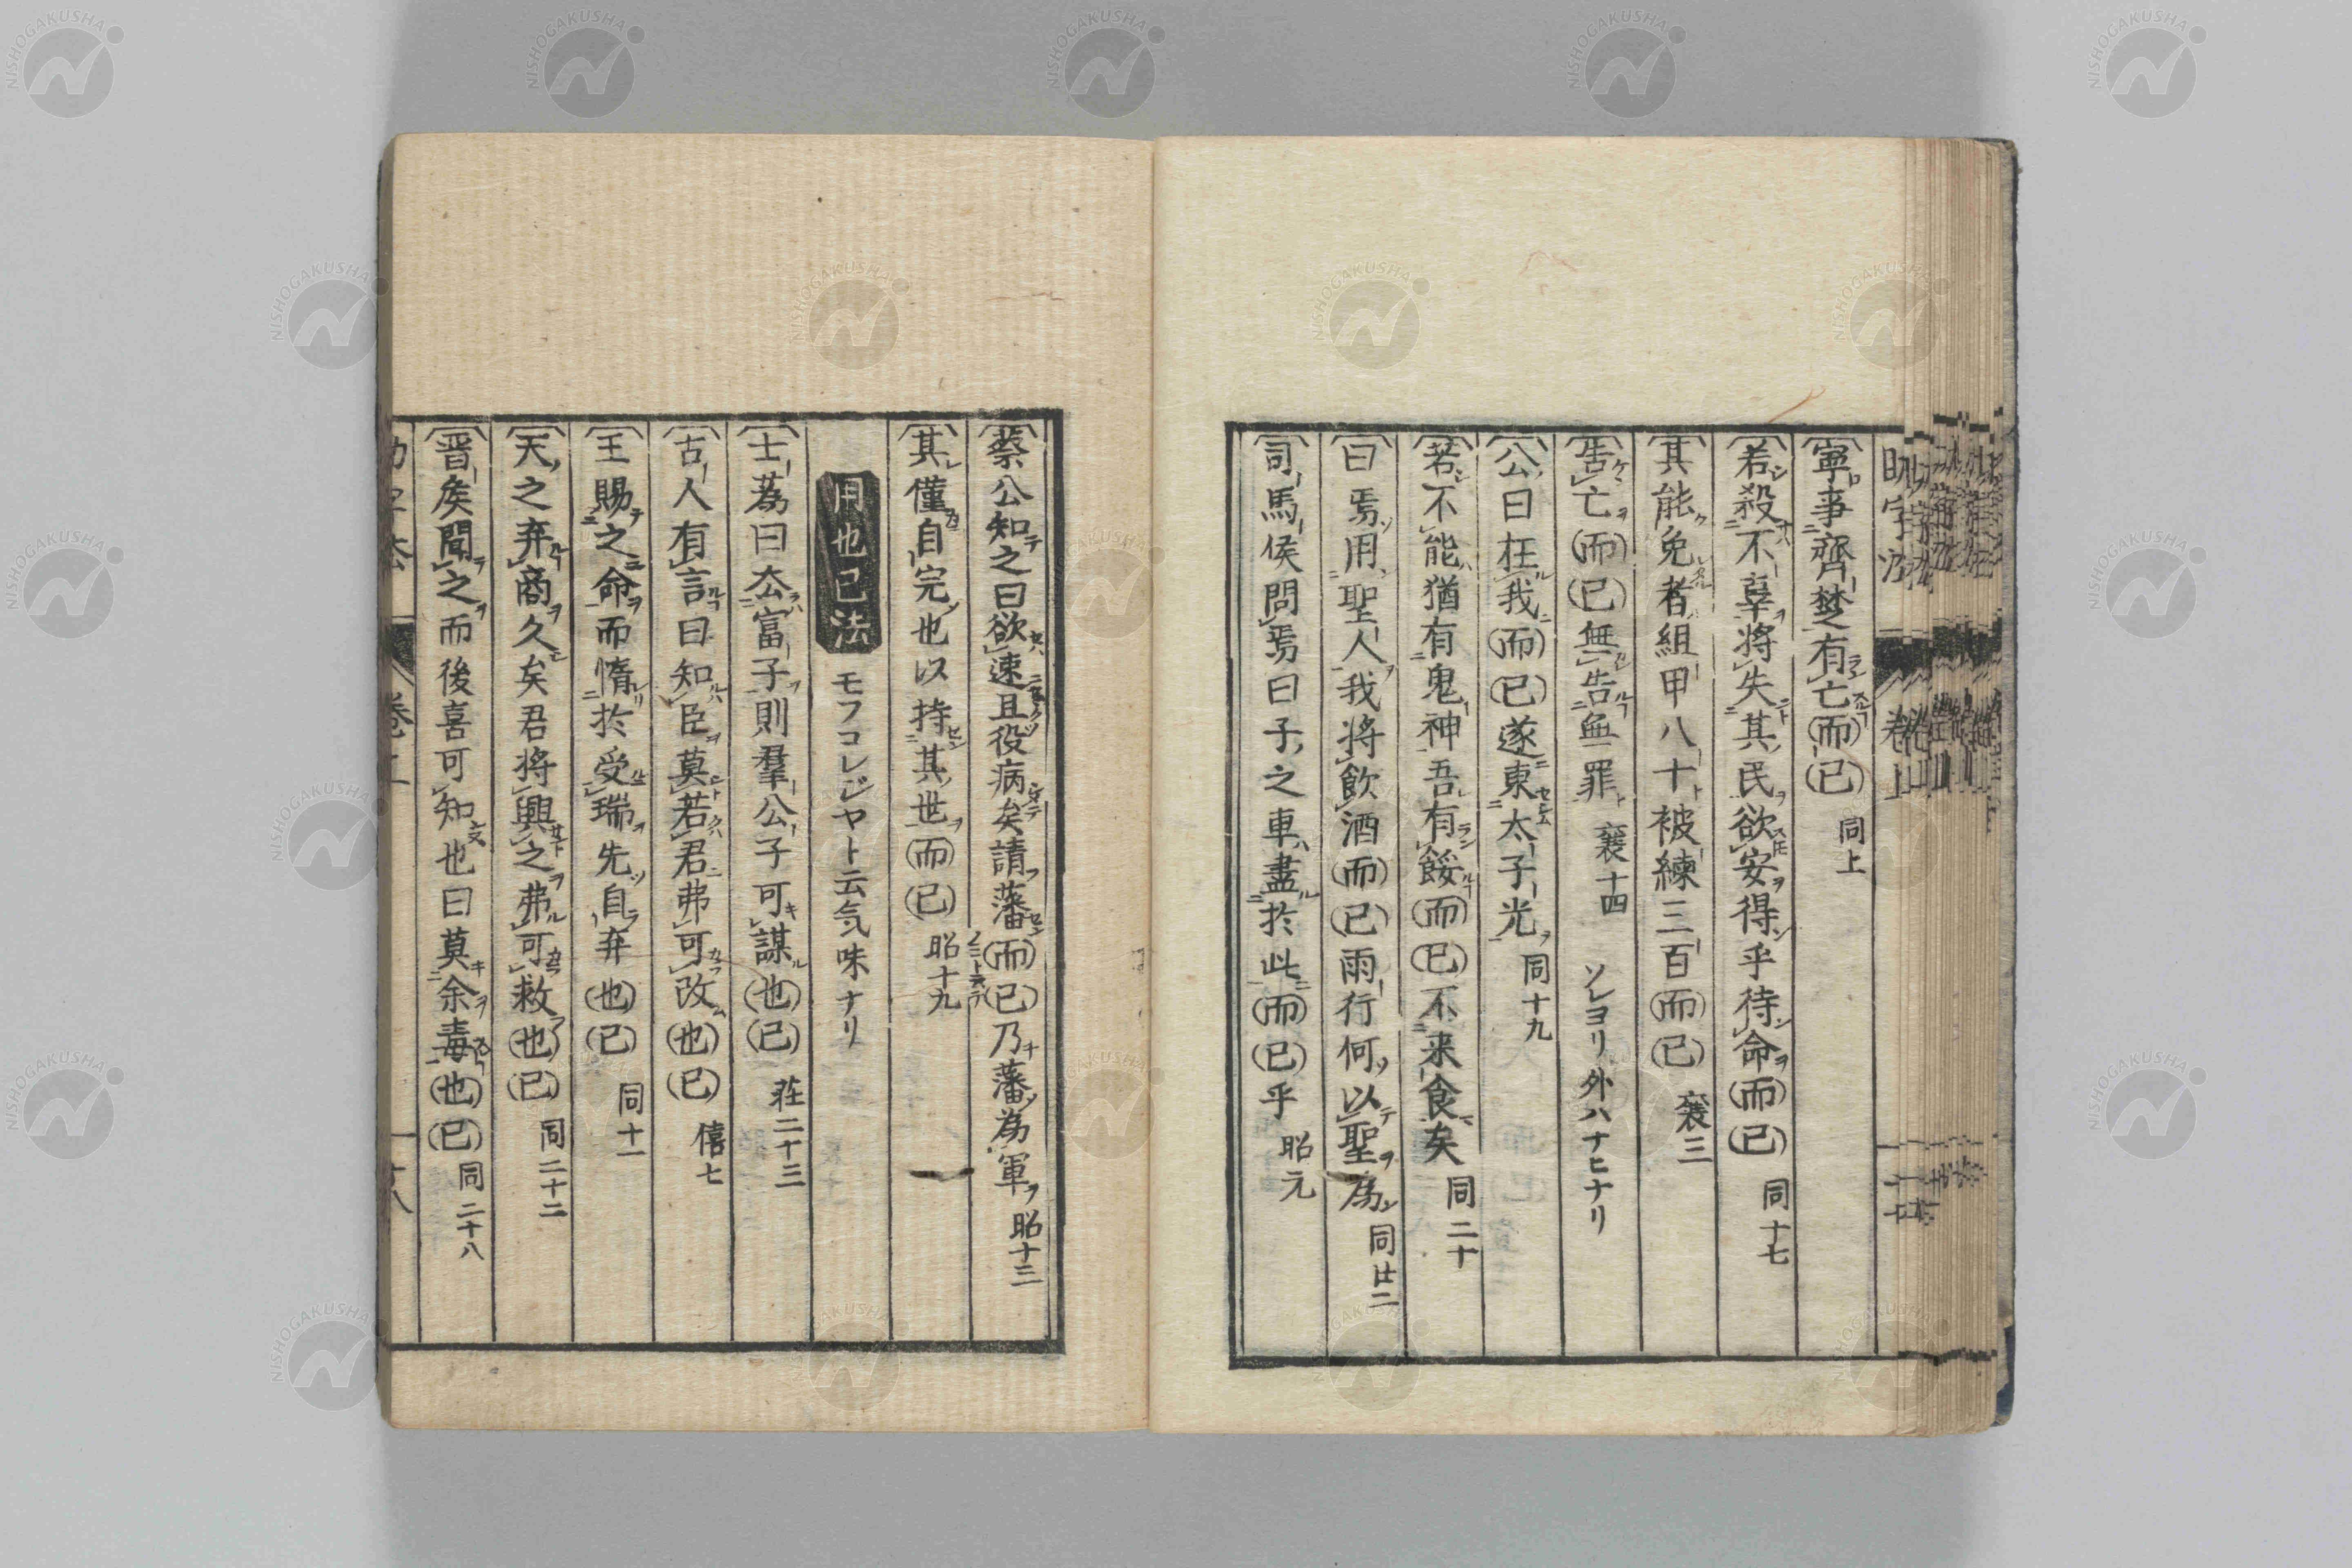 寧事齊楚有亡而已 同上
若殺不辜將失其民欲安得乎待命而已 同十七
其能免者組甲八十被練三百而已 襄三
告亡而已無告無罪 襄十四 ソレヨリ外ハナヒナリ
公曰在我而已遂東太子光 同十九
若不能猶有鬼神吾有餒而已不来食矣 同二十
曰焉用聖人我將飲酒而已雨行何以聖為 同廿二
司馬侯問焉曰子之車盡於此而已乎 昭元
蔡公知之曰欲速且役病矣請藩而已乃藩為軍 昭十三
其僅自完也以持其世而已 昭十九
用也已法 モフコレジヤト云気味ナリ
士蒍曰去富子則羣公子可謀也已 荘二十三
古人有言曰知臣莫若君弗可改也已 僖七
王賜之命而惰於受瑞先自弃也已 同十一
天之弃商久矣君將興之弗可救也已 同二十二
晋矦聞之而後喜可知也曰莫余毒也已 同二十八
NISHOGAKUSHA